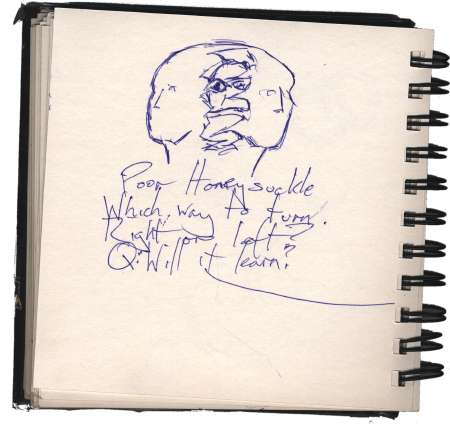 Poor Honeysuckle
Which way to turn.
Right or left?
Q: Will it learn?